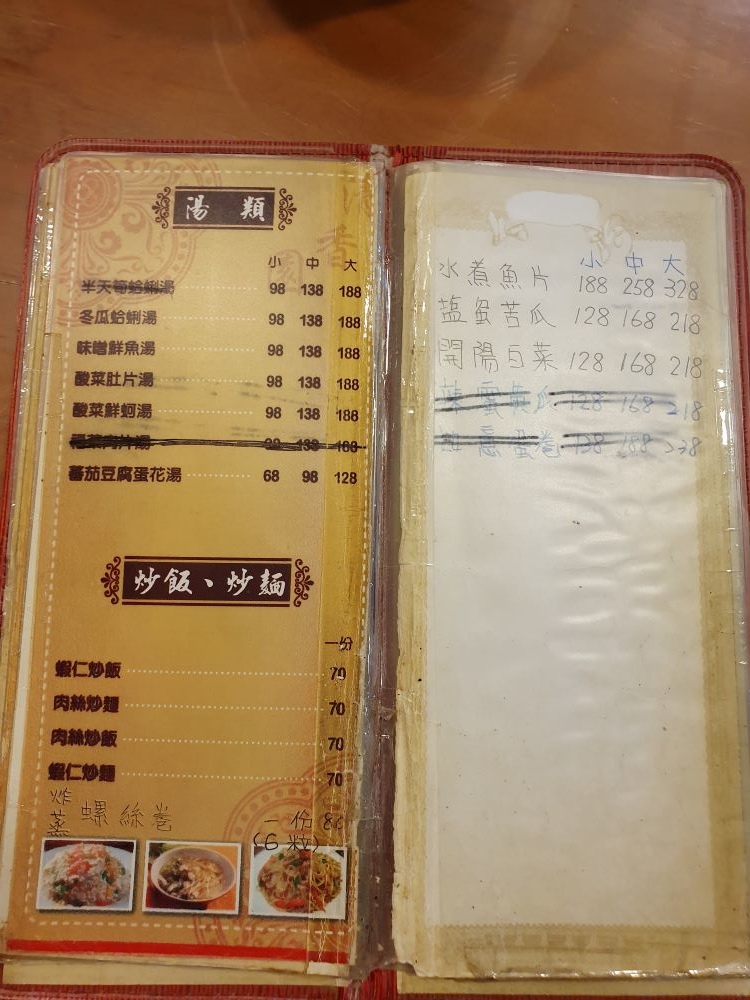 湯 類
小 中 大
半天筍蛤蜊湯 98 138 188
冬瓜蛤蜊湯 98 138 188
味噌鮮魚湯 98 138 188
酸菜肚片湯 98 138 188
酸菜鮮蚵湯 98 138 188
肉片湯 138 188
蕃茄豆腐蛋花湯 68 98 128
炒飯、炒麵
一份
蝦仁炒飯 70
肉絲炒麵 70
肉絲炒飯 70
蝦仁炒麵 70
炸
蒸 螺絲卷 一份
(6粒)
小 中 大
水煮魚片 188 258 328
鹽蛋苦瓜 128 168 218
開陽白菜 128 168 218
128 168 218
蛋卷 138 188 238